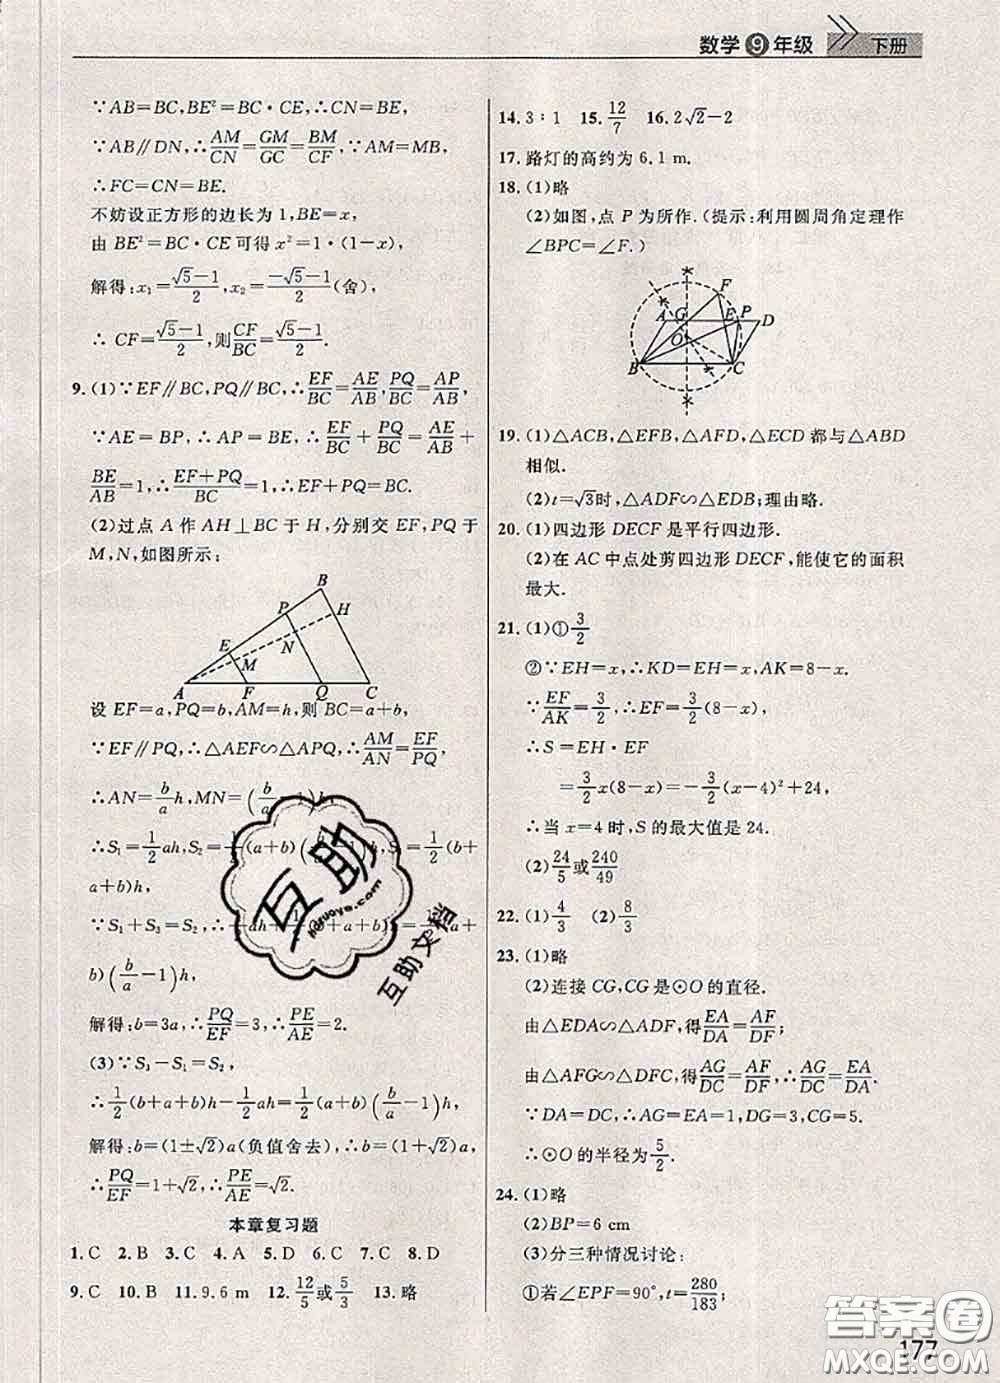 数学9年级
下册
∵AB=BC,BE²=BC·CE,∴CN=BE,
∵AB∥DN,∴AM/CN=GM/GC=BM/CF,∵AM=MB,
∴FC=CN=BE.
不妨设正方形的边长为1,BE=x,
由BE²=BC·CE可得x²=1·(1-x),
解得:x₁=(√5-1)/2,x₂=(-√5-1)/2(舍),
∴CF=(√5-1)/2,则CF/BC=(√5-1)/2.
9.(1)∵EF∥BC,PQ∥BC,∴EF/BC=AE/AB,PQ/BC=AP/AB,
∵AE=BP,∴AP=BE,∴EF/BC+PQ/BC=AE/AB+
BE/AB=1,∴(EF+PQ)/BC=1,∴EF+PQ=BC.
(2)过点A作AH⊥BC于H,分别交EF,PQ于
M,N,如图所示:
B
P
H
E
M
N
A
F
Q
C
设EF=a,PQ=b,AM=h,则BC=a+b,
∵EF∥PQ,∴△AEF∽△APQ,∴AM/AN=EF/PQ,
∴AN=b/a h,MN=(b/a-1)h,
∴S₁=1/2 ah,S₂=1/2(a+b)(b/a-1)h,S₃=1/2(b+
a+b)h,
∵S₁+S₃=S₂,∴1/2 ah+1/2(b+a+b)h=1/2(a+
b)(b/a-1)h,
解得:b=3a,∴PQ/EF=3,∴PE/AE=2.
(3)∵S₃-S₁=S₂,
∴1/2(b+a+b)h-1/2 ah=1/2(a+b)(b/a-1)h,
解得:b=(1±√2)a(负值舍去),∴b=(1+√2)a,
∴PQ/EF=1+√2,∴PE/AE=√2.
本章复习题
1.C 2.B 3.C 4.A 5.D 6.C 7.C 8.D
9.C 10.B 11.9.6 m 12.12/5或5/3 13.略
14.3∶1 15.12/7 16.2√2-2
17.路灯的高约为6.1 m.
18.(1)略
(2)如图,点P为所作.(提示:利用圆周角定理作
∠BPC=∠F.)
F
A G E P D
O
B
C
19.(1)△ACB,△EFB,△AFD,△ECD都与△ABD
相似.
(2)t=√3时,△ADF∽△EDB;理由略.
20.(1)四边形DECF是平行四边形.
(2)在AC中点处剪四边形DECF,能使它的面积
最大.
21.(1)①3/2
②∵EH=x,∴KD=EH=x,AK=8-x.
∵EF/AK=3/2,∴EF=3/2(8-x),
∴S=EH·EF
=3/2 x(8-x)=-3/2(x-4)²+24,
∴当x=4时,S的最大值是24.
(2)24/5或240/49
22.(1)4/3 (2)8/3
23.(1)略
(2)连接CG,CG是⊙O的直径.
由△EDA∽△ADF,得EA/DA=AF/DF;
由△AFG∽△DFC,得AG/DC=AF/DF,∴AG/DC=EA/DA.
∵DA=DC,∴AG=EA=1,DG=3,CG=5.
∴⊙O的半径为5/2.
24.(1)略
(2)BP=6 cm
(3)分三种情况讨论:
①若∠EPF=90°,t=280/183;
177
互助
huzuoye.com
互助文档
答案圈
MXQE.COM